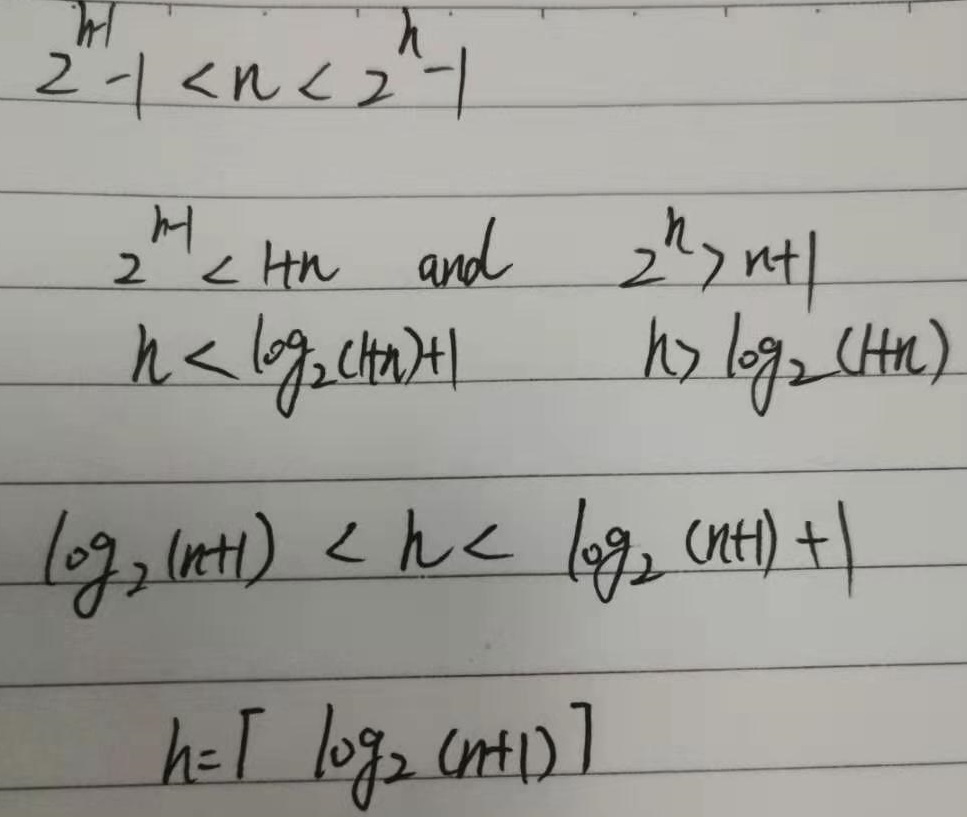 2^{h-1} - 1 < n < 2^h - 1
2^{h-1} < 1+n and 2^h > n+1
h < log₂(1+n)+1 h > log₂(1+n)
log₂(n+1) < h < log₂(n+1)+1
h = ⌈ log₂(n+1) ⌉